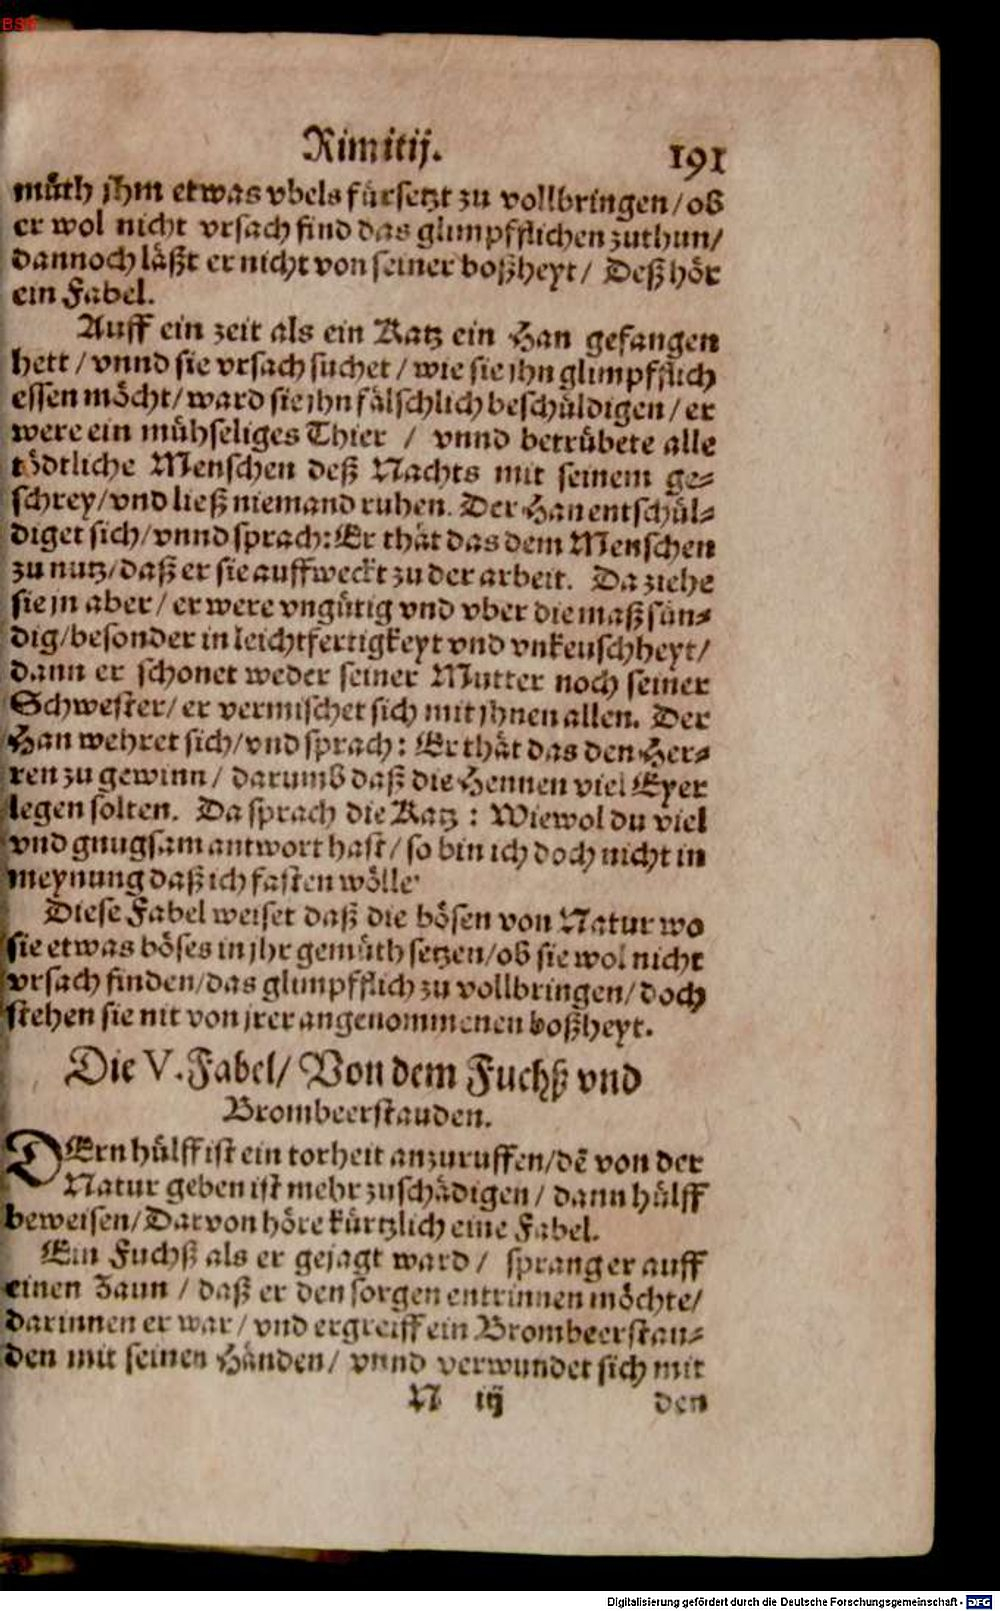 BSB
Rimitij.
191
müth jhm etwas vbels fürsetzt zu vollbringen/ob
er wol nicht vrsach find das glimpfflichen zuthun/
dannoch läßt er nicht von seiner boßheyt/ Deß hör
ein Fabel.
Auff ein zeit als ein Katz ein Han gefangen
hett/vnnd sie vrsach suchet/wie sie jhn glimpfflich
essen möcht/ward sie jhn fälschlich beschüldigen/er
were ein mühseliges Thier / vnnd betrübete alle
tödtliche Menschen deß Nachts mit seinem ge-
schrey/vnd ließ niemand ruhen. Der Han entschül-
diget sich/vnnd sprach: Er thät das dem Menschen
zu nutz/daß er sie auffweckt zu der arbeit. Da ziehe
sie jn aber/er were vngütig vnd vber die maß sün-
dig/besonder in leichtfertigkeyt vnd vnkeuschheyt/
dann er schonet weder seiner Mutter noch seiner
Schwester/er vermischet sich mit jhnen allen. Der
Han wehret sich/vnd sprach: Er thät das den Her-
ren zu gewinn/darumb daß die Hennen viel Eyer
legen solten. Da sprach die Katz: Wiewol du viel
vnd gnugsam antwort hast/so bin ich doch nicht in
meynung daß ich fasten wölle.
Diese Fabel weiset daß die bösen von Natur wo
sie etwas böses in jhr gemüth setzen/ob sie wol nicht
vrsach finden/das glimpfflich zu vollbringen/doch
stehen sie nit von jrer angenommenen boßheyt.
Die V. Fabel/Von dem Fuchß vnd
Brombeerstauden.
DErn hülff ist ein torheit anzuruffen/dē von der
Natur geben ist mehr zuschädigen/dann hülff
beweisen/Darvon höre kürtzlich eine Fabel.
Ein Fuchß als er gejagt ward/ sprang er auff
einen Zaun / daß er den sorgen entrinnen möchte/
darinnen er war/vnd ergreiff ein Brombeerstau-
den mit seinen Händen/ vnnd verwundet sich mit
N iij
den
Digitalisierung gefördert durch die Deutsche Forschungsgemeinschaft - DFG